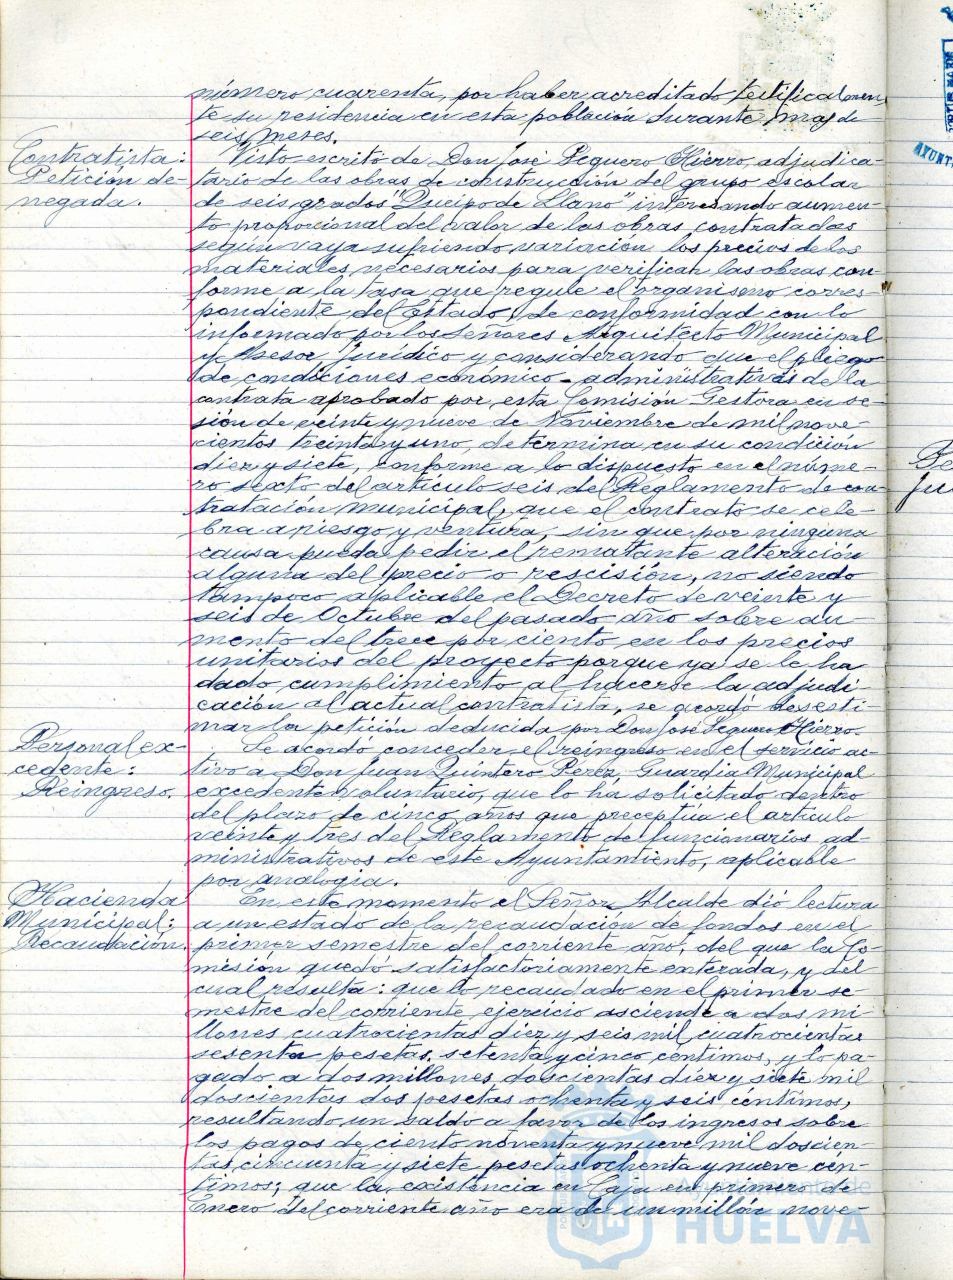 número cuarenta, por haber acreditado testificalmen-
te su residencia en esta población durante mas de
seis meses.
Contratista:
Petición de-
negada.
Visto escrito de Don José Peguero Hierro, adjudica-
tario de las obras de construcción del grupo escolar
de seis grados "Queipo de Llano" interesando aumen-
to proporcional del valor de las obras contratadas
según vaya sufriendo variación los precios de los
materiales necesarios para verificar las obras con-
forme a la tasa que regule el organismo corres-
pondiente del Estado, de conformidad con lo
informado por los Señores Arquitecto Municipal
y Asesor Jurídico y considerando que el pliego
de condiciones económico-administrativas de la
contrata aprobado por esta Comisión Gestora en se-
sión de veinte y nueve de Noviembre de mil nove-
cientos treinta y uno, determina en su condición
diez y siete, conforme a lo dispuesto en el núme-
ro sexto del artículo seis del Reglamento de con-
tratación municipal, que el contrato se cele-
bra a riesgo y ventura, sin que por ninguna
causa pueda pedir el rematante alteración
alguna del precio o rescisión, no siendo
tampoco aplicable el Decreto de veinte y
seis de Octubre del pasado año sobre au-
mento del trece por ciento en los precios
unitarios del proyecto porque ya se le ha
dado cumplimiento al hacerse la adjudi-
cación al actual contratista, se acordó desesti-
mar la petición deducida por Don José Peguero Hierro.
Personal ex-
cedente:
Reingreso.
Se acordó conceder el reingreso en el servicio ac-
tivo a Don Juan Quintero Pérez, Guardia Municipal
excedente voluntario, que lo ha solicitado dentro
del plazo de cinco años que preceptúa el artículo
veinte y tres del Reglamento de funcionarios ad-
ministrativos de este Ayuntamiento, aplicable
por analogia.
Hacienda
Municipal:
Recaudación.
En este momento el Señor Alcalde dió lectura
a un estado de la recaudación de fondos en el
primer semestre del corriente año, del que la Co-
misión quedó satisfactoriamente enterada, y del
cual resulta: que lo recaudado en el primer se-
mestre del corriente ejercicio asciende a dos mi-
llones cuatrocientas diez y seis mil cuatrocientas
sesenta pesetas, setenta y cinco centimos, y lo pa-
gado a dos millones doscientas diez y siete mil
doscientas dos pesetas ochenta y seis céntimos,
resultando un saldo a favor de los ingresos sobre
los pagos de ciento noventa y nueve mil doscien-
tas cincuenta y siete pesetas ochenta y nueve cen-
timos; que la existencia en Caja en primero de
Enero del corriente año era de un millón nove-
Ayuntamiento de
HUELVA